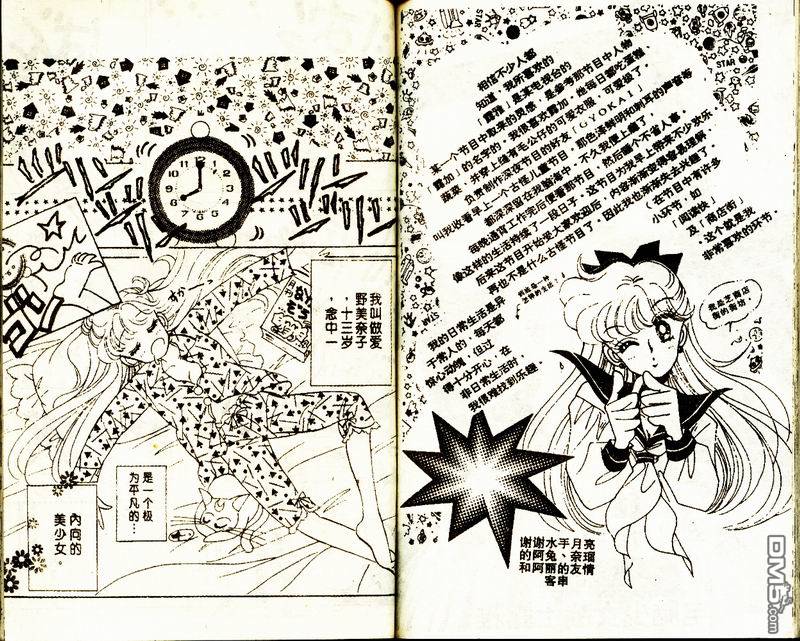 STAR
STAR
相信不少人都
知道，我所喜欢的
某一个节目中得来的灵感，是参考那节目中人物
「露加」的名字的，我很喜欢露加，她每日都吃藻类
蔬菜，并穿上缝有毛公仔的可爱衣服，可爱极了。
负责制作深夜节目的好友「GYOKAI」
叫我收看早上一个古怪儿童节目，那色泽刺眼和刺耳的声音等
都深深留在我脑海中，不久我便上瘾了，
每晚通宵工作完后便看那节目，然后睡个不省人事，
像这样的生活持续了一段日子。这节目为我早上带来不少欢乐
后来这节目开始受大家欢迎后，内容渐渐变得容易理解，
再也不是什么古怪节目了，因此我也渐渐失去兴趣了。
（在节目中有许多
小环节，如
「阅读快」
及「商店街」
，这个就是我
非常喜欢的环节。
我的日常生活是异
于常人的，每天都
惊心动魄，但过
得十分开心，在
非日常生活时，
我很难找到乐趣。
亮瑠情
月奈友
手、的串
水兔丽客
谢阿阿
谢的和
12
我叫做爱
野美奈子
，十三岁
，念中一
是一个极
为平凡的…
内向的
美少女。
DM5.com